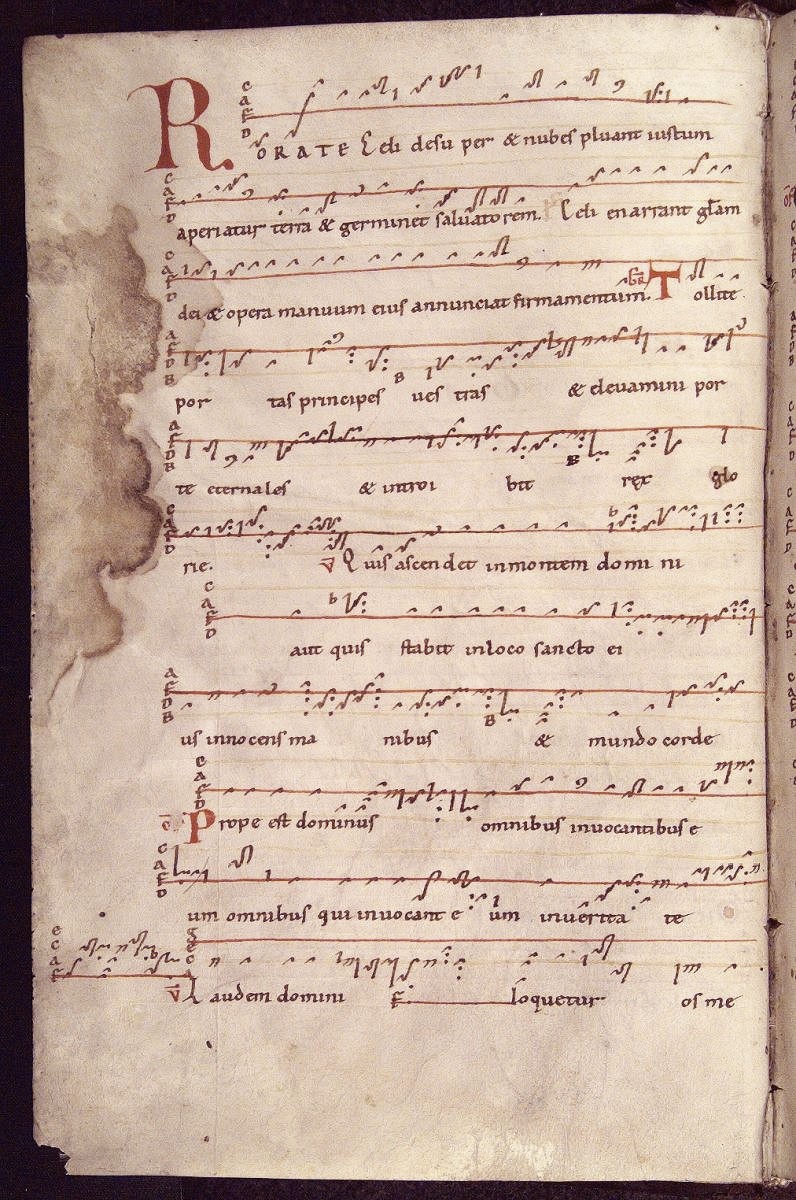 RORATE Celi desu per & nubes pluant iustum
aperiatur terra & germinet saluatorem. Celi enarrant glam
dei & opera manuum eius annunciat firmamentum. Tollite
por tas principes ues tras & eleuamini por
te eternales & introi bit rex glo
rie. Quis ascendet inmontem domi ni
aut quis stabit inloco sancto ei
us innocens ma nibus & mundo corde
Prope est dominus omnibus inuocantibus e
um omnibus qui inuocant e um inuerita te
Laudem domini loquetur os me